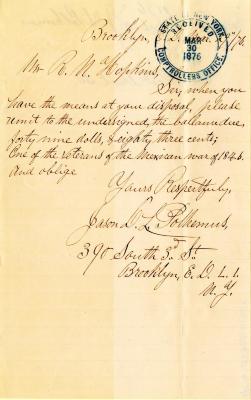 Brooklyn, 76.
STATE OF NEW YORK
RECEIVED
MAR
30
1876
COMPTROLLERS OFFICE.
Mr R. N. Hopkins,
Sir, when you
have the means at your disposal, please
remit to the undersigned, the ballance due,
forty nine dolls, & eighty three cents;
One of the veterans of the Mexican war of 1846.
and oblige
Yours Respectfully,
Jason D. L. Polhemus,
390 South 3d St
Brooklyn, E. D. L. I.
N. Y.